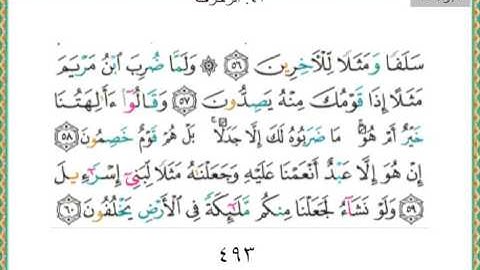 سَلَفًا وَمَثَلًا لِّلْآخِرِينَ ٥٦ ۞ وَلَمَّا ضُرِبَ ابْنُ مَرْيَمَ
مَثَلًا إِذَا قَوْمُكَ مِنْهُ يَصِدُّونَ ٥٧ وَقَالُوٓا۟ ءَأَٰلِهَتُنَا
خَيْرٌ أَمْ هُوَ ۚ مَا ضَرَبُوهُ لَكَ إِلَّا جَدَلًۢا ۚ بَلْ هُمْ قَوْمٌ خَصِمُونَ ٥٨
إِنْ هُوَ إِلَّا عَبْدٌ أَنْعَمْنَا عَلَيْهِ وَجَعَلْنَٰهُ مَثَلًا لِّبَنِىٓ إِسْرَٰٓءِيلَ
٥٩ وَلَوْ نَشَآءُ لَجَعَلْنَا مِنكُم مَّلَٰٓئِكَةً فِى ٱلْأَرْضِ يَخْلُفُونَ ٦٠
٤٩٣